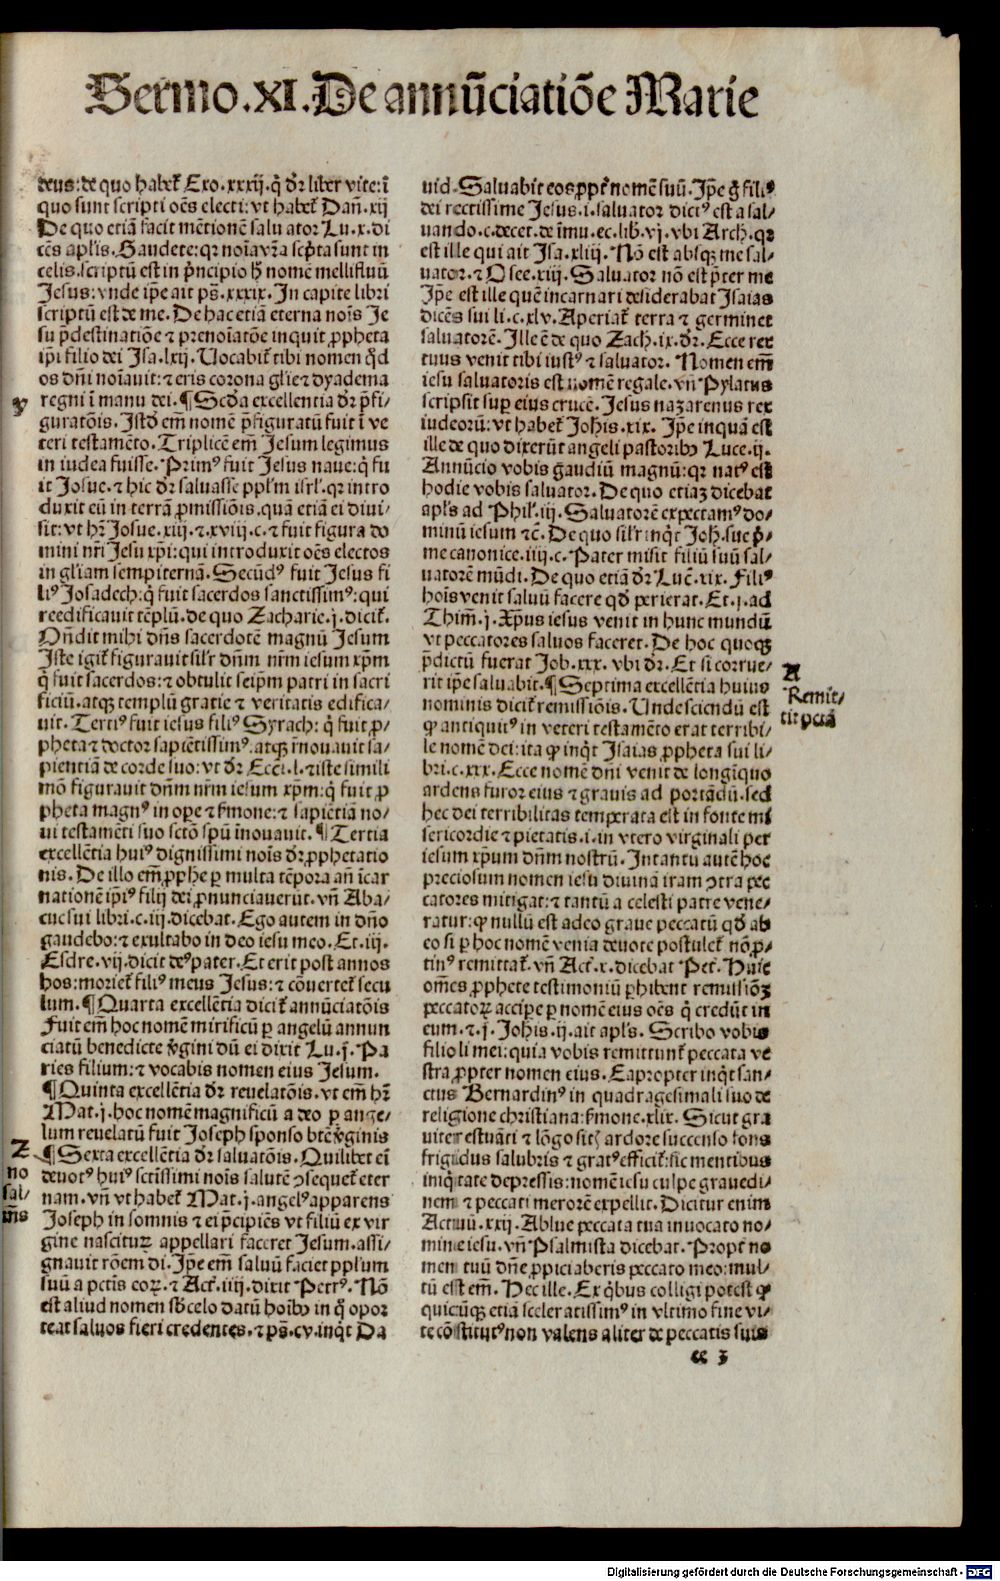 Sermo.XI.De annũciatiõe Marie
deus:de quo habet᷑ Exo.xxxij.q̃ dr̃ liber vite:ĩ
quo sunt scripti oẽs electi:vt habet᷑ Dañ.xij
De quo etiã facit mẽtionẽ saluator Lu.x.di
cẽs apl̃is.Gaudete:qr noĩa vr̃a scp̃ta sunt in
celis.scriptũ est in p̃ncipio hͦ nomẽ mellifluũ
Jesus:vnde ip̃e ait ps̃.xxxix.In capite libri
scriptũ est de me.De hac etiã eterna noĩs Je
su p̃destinatiõe ⁊ prenoĩatõe inquit ꝓpheta
ip̃i filio dei Isa.lxij.Uocabit᷑ tibi nomen qd̃
os dñi noĩauit:⁊ eris corona gl̃ie ⁊ dyadema
y
regni ĩ manu dei.¶Scd̃a excellentia dr̃ p̃fi-
guratõis.Istd̃ em̃ nomẽ p̃figuratũ fuit ĩ ve
teri testamẽto.Triplicẽ em̃ Jesum legimus
in iudea fuisse.Primꝰ fuit Jesus naue:q̃ fu
it Josue.⁊ hic dr̃ saluasse ppl̃m isrl̃.qr intro
duxit eũ in terrã ꝓmissiõis.quã etiã ei diui-
sit:vt hr̃ Josue.xiij.⁊.xviij.c.⁊ fuit figura do
mini nr̃i Jesu xp̃i:qui introduxit oẽs electos
in gl̃iam sempiternã.Secũdꝰ fuit Jesus fi
liꝰ Josadech:q̃ fuit sacerdos sanctissimꝰ:qui
reedificauit tẽplũ.de quo Zacharie.j.dicit᷑.
Oñdit mihi dñs sacerdotẽ magnũ Jesum
Iste igit᷑ figurauit sil̃r dñm nr̃m iesum xp̃m
q̃ fuit sacerdos:⁊ obtulit seip̃m patri in sacri
ficiũ.atqꝫ templũ gratie ⁊ veritatis edifica-
uit.Tertiꝰ fuit iesus filiꝰ Syrach:q̃ fuit ꝓ-
pheta ⁊ doctor sapiẽtissimꝰ.atqꝫ r̃nouauit sa-
pientiã de corde suo:vt dr̃ Ecci.l.⁊ iste simili
mõ figurauit dñm nr̃m iesum xp̃m:q̃ fuit ꝓ
pheta magnꝰ in oꝑe ⁊ f̃mone:⁊ sapiẽtiã no-
ui testamẽti suo sctõ spũ ĩnouauit.¶Tertia
excellẽtia huiꝰ dignissimi noĩs dr̃ ꝓphetatio
nis.De illo em̃ ꝓphe ꝑ multa tẽpora añ ĩcar
nationẽ ip̃iꝰ filij dei ꝓnunciauerũt.vñ Aba-
cuc sui libri.c.iij.dicebat.Ego autem in dño
gaudebo:⁊ exultabo in deo iesu meo.Et.iij.
Esdre.vij.dicit deꝰ pater.Et erit post annos
hos:moriet᷑ filiꝰ meus Jesus:⁊ cõuertet᷑ secu
lum.¶Quarta excellẽtia dicit᷑ annũciatõis
Fuit em̃ hoc nomẽ mirificũ ꝑ angelũ annun
ciatũ benedicte v̓gini dũ ei dixit Lu.j.Pa
ries filium:⁊ vocabis nomen eius Jesum.
¶Quinta excellẽtia dr̃ reuelatõis.vt em̃ hr̃
Mat.j.hoc nomẽ magnificũ a deo ꝑ ange-
lum reuelatũ fuit Joseph sponso btẽ v̓ginis
Z
no
sal-
uãs
¶Sexta excellẽtia dr̃ saluatõis.Quilibet eĩ
deuotꝰ huiꝰ sctissimi noĩs salutẽ ꝯsequet᷑ eter
nam.vñ vt habet᷑ Mat.j.angelꝰ apparens
Joseph in somnis ⁊ ei p̃cipiẽs vt filiũ ex vir
gine nasciturꝫ appellari faceret Jesum.assi-
gnauit rõem di.Ip̃e em̃ saluũ faciet ppl̃um
suũ a pctĩs eorꝫ.⁊ Act̃.iiij.dixit Petrꝰ.Nõ
est aliud nomen sb̃ celo datũ hoĩbꝰ in q̃ opor
teat saluos fieri credentes.⁊ ps̃.cv.inq̃t Da
uid.Saluabit eos ꝓpt̃ nomẽ suũ.Ip̃e g̃ filiꝰ
dei rectissime Jesus.i.saluator dictꝰ est a sal-
uando.c.decet.de ĩmu.ec.lib̃.vj.vbi Arch̃.qr
est ille qui ait Isa.xliij.Nõ est absqꝫ me sal-
uator.⁊ Osee.xiij.Saluator nõ est p̃ter me
Ip̃e est ille quẽ incarnari desiderabat Isaias
dicẽs sui li.c.xlv.Aperiat᷑ terra ⁊ germinet
saluatorẽ.Ille ẽ de quo Zach̃.ix.dr̃.Ecce rex
tuus venit tibi iustꝰ ⁊ saluator.Nomen em̃
iesu saluatoris est nomẽ regale.vñ Pylatus
scripsit suꝑ eius crucẽ.Jesus nazarenus rex
iudeorũ:vt habet᷑ Joh̃is.xix.Ip̃e inquã est
ille de quo dixerũt angeli pastoribꝰ Luce.ij.
Annũcio vobis gaudiũ magnũ:qr natꝰ est
hodie vobis saluator.De quo etiaꝫ dicebat
apl̃s ad Phil̃.iij.Saluatorẽ expectamꝰ do-
minũ iesum ⁊c̃.De quo sil̃r inq̃t Joh̃.sue p̃-
me canonice.iiij.c.Pater misit filiũ suũ sal-
uatorẽ mũdi.De quo etiã dr̃ Luc̃.xix.Filiꝰ
hoĩs venit saluũ facere qd̃ perierat.Et.j.ad
Thim̃.j.Xp̃us iesus venit in hunc mundũ
vt peccatores saluos faceret.De hoc quoqꝫ
p̃dictũ fuerat Job.xxx.vbi dr̃.Et si corrue-
rit ip̃e saluabit.¶Septima excellẽtia huius
A
Remit-
tit pctã
nominis dicit᷑ remissiõis.Unde sciendũ est
ꝙ antiquitꝰ in veteri testamẽto erat terribi-
le nomẽ dei:ita ꝙ inq̃t Isaias ꝓpheta sui li-
bri.c.xxx.Ecce nomẽ dñi venit de longĩquo
ardens furor eius ⁊ grauis ad portãdũ.sed
hec dei terribilitas temperata est in fonte mi
sericordie ⁊ pietatis.i.in vtero virginali per
iesum xp̃um dñm nostrũ.In tantũ autẽ hoc
preciosum nomen iesu diuinã iram ꝯtra pec
catores mitigat:⁊ tantũ a celesti patre vene-
ratur:ꝙ nullũ est adeo graue peccatũ qd̃ ab
eo si ꝑ hoc nomẽ venia deuote postulet᷑ nõ ꝓ-
tinꝰ remittat᷑.vñ Act̃.x.dicebat Pet̃.Huic
om̃es ꝓphete testimoniũ ꝑhibent remissiõꝫ
peccatorꝫ accipe ꝑ nomẽ eius oẽs q̃ credũt in
eum.⁊.j.Joh̃is.ij.ait apl̃s.Scribo vobis
filioli mei:quia vobis remittunt᷑ peccata ve
stra ꝓpter nomen eius.Eapropter inq̃t san-
ctus Bernardinꝰ in quadragesimali suo de
religione christiana:f̃mone.xlix.Sicut gra
uiter estuãti ⁊ lõgo sitꝭ ardore succenso fons
frigidus salubris ⁊ gratꝰ efficit᷑:sic mentibus
iniq̃tate depressis:nomẽ iesu culpe grauedi-
nem ⁊ peccati merorẽ expellit.Dicitur enim
Actuũ.xxij.Ablue peccata tua inuocato no-
mine iesu.vñ Psalmista dicebat.Propt̃ no
men tuũ dñe ꝓpiciaberis peccato meo:mul-
tũ est em̃.Hec ille.Ex q̃bus colligi potest ꝙ
quicũqꝫ etiã sceleratissimꝰ in vltimo fine vi-
te cõstitutꝰ non valens aliter de peccatis suis
cc 3
Digitalisierung gefördert durch die Deutsche Forschungsgemeinschaft - DFG